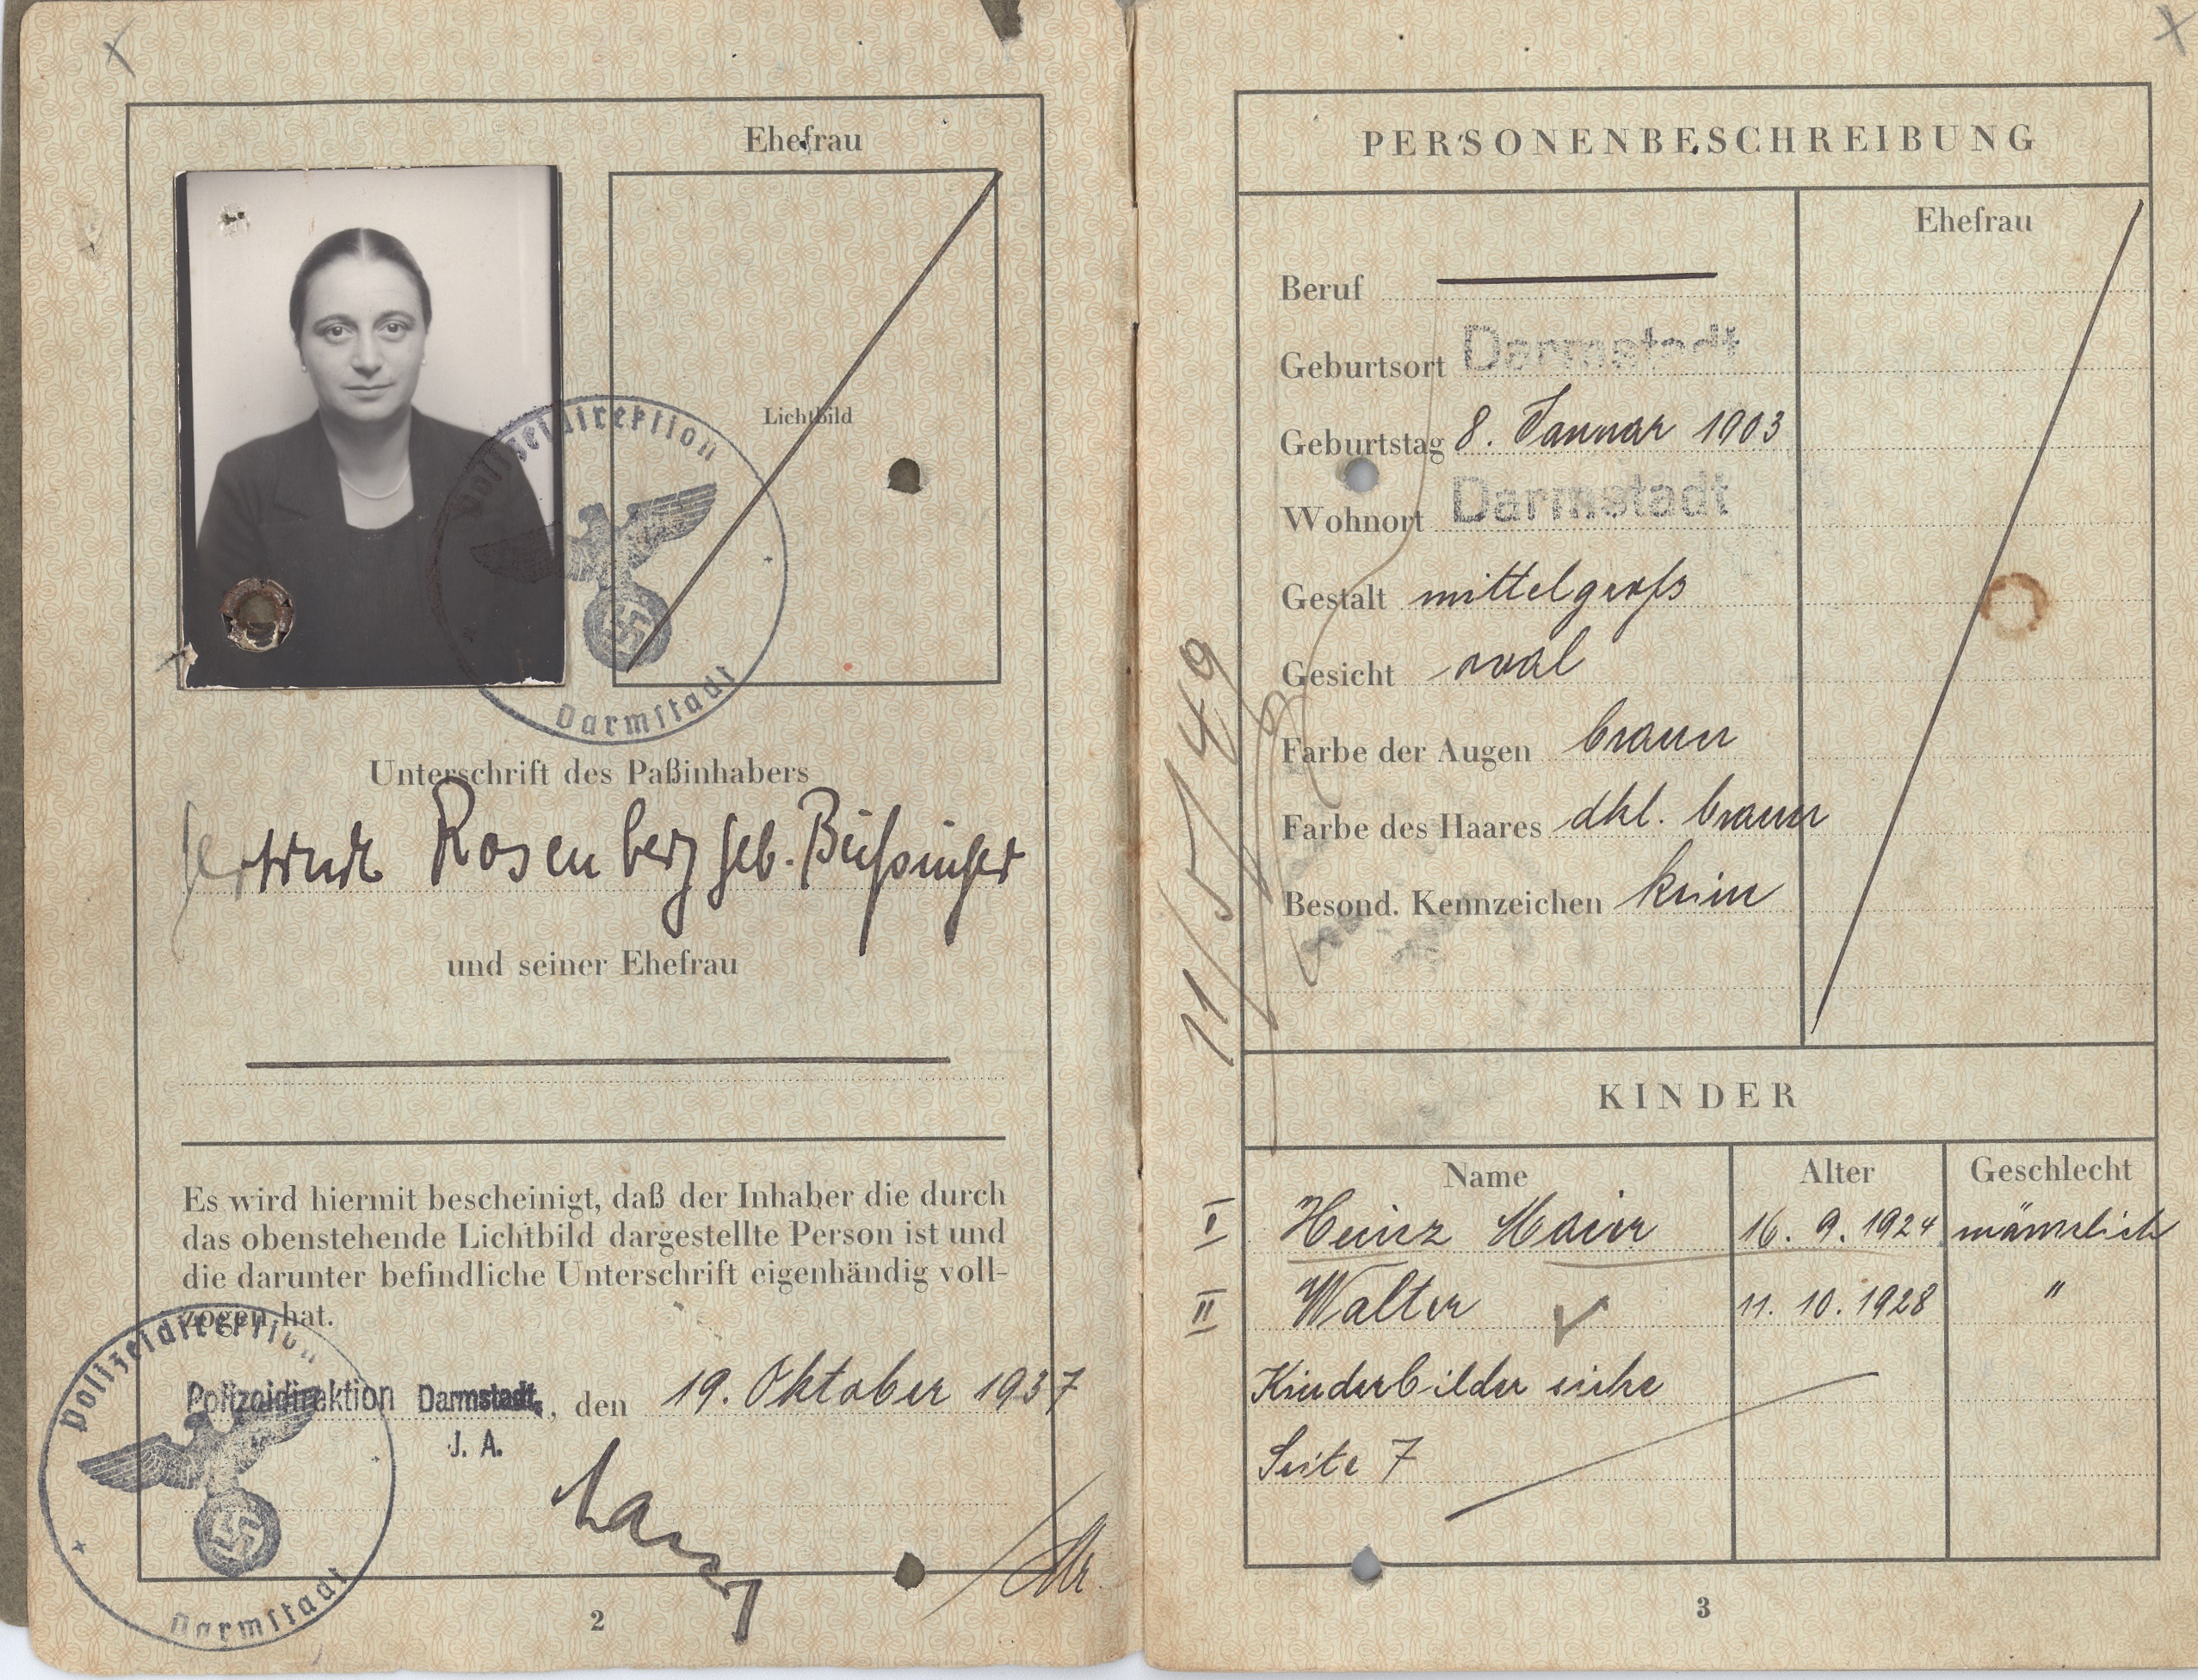 Ehefrau
Lichtbild
Polizeidirektion
Darmstadt
Unterschrift des Paßinhabers
Gertrude Rosenberg geb. Bußinger
und seiner Ehefrau
Es wird hiermit bescheinigt, daß der Inhaber die durch
das obenstehende Lichtbild dargestellte Person ist und
die darunter befindliche Unterschrift eigenhändig voll-
zogen hat.
Polizeidirektion
Polizeidirektion Darmstadt, den 19. Oktober 1937
J. A.
Darmstadt
2
PERSONENBESCHREIBUNG
Ehefrau
Beruf
Geburtsort Darmstadt
Geburtstag 8. Januar 1903
Wohnort Darmstadt
Gestalt mittelgroß
Gesicht oval
Farbe der Augen braun
Farbe des Haares dkl. braun
Besond. Kennzeichen keine
11/5/49
KINDER
Name Alter Geschlecht
I Heinz Maier 16. 9. 1924 männlich
II Walter 11. 10. 1928 "
Kinderbilder siehe
Seite 7
3